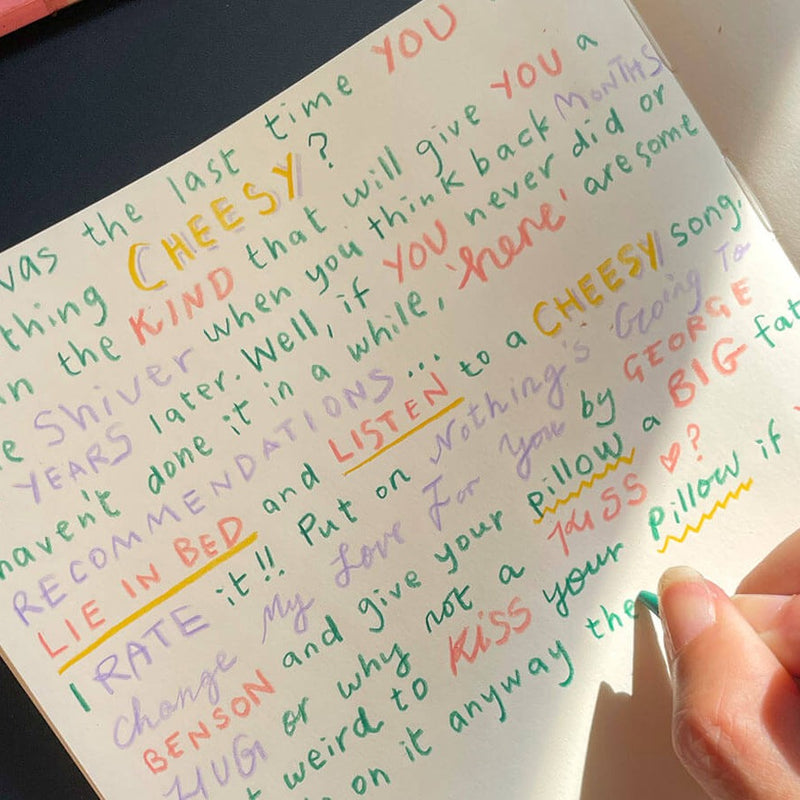 vas the last time YOU
thing CHEESY?
n the KIND that will give YOU a
e Shiver when you think back MONTHS
YEARS later. Well, if YOU never did or
haven't done it in a while, 'here' are some
RECOMMENDATIONS...
LIE IN BED and LISTEN to a CHEESY song.
I RATE it!! Put on Nothing's Going To
Change My Love For You by GEORGE
BENSON and give your pillow a BIG fat
HUG or why not a KISS ♡?
t weird to KiSS your pillow if
on it anyway the